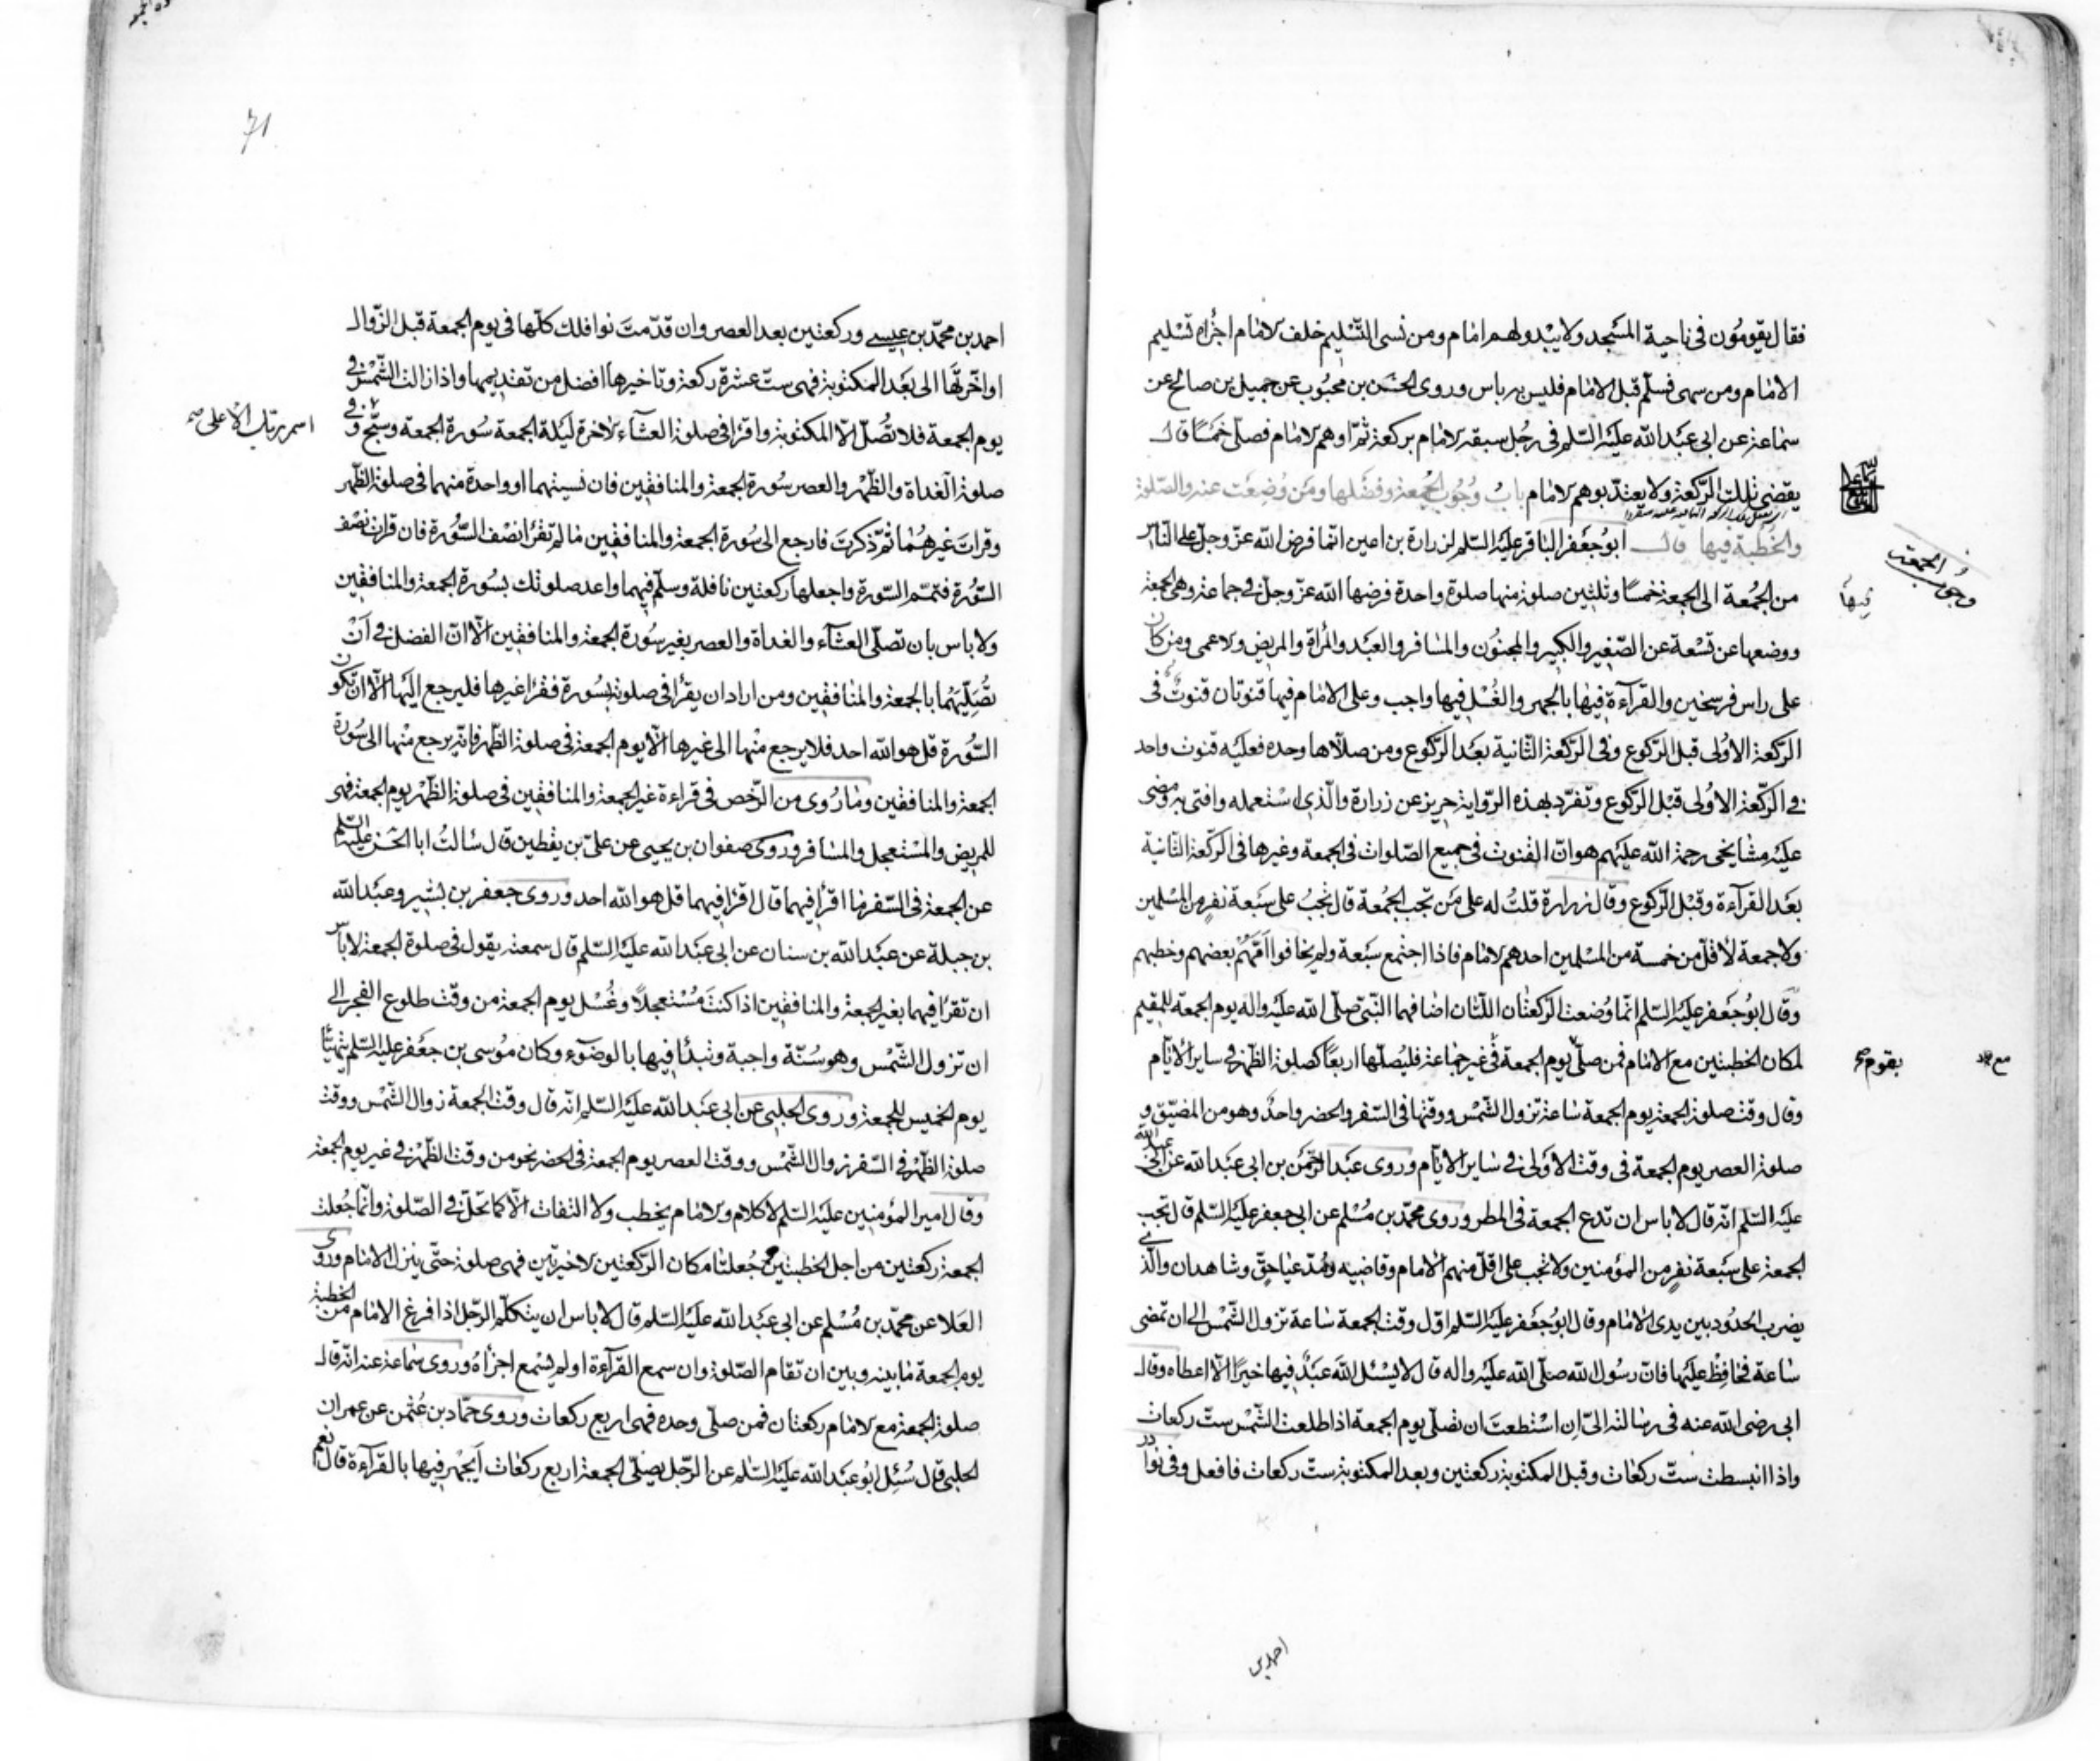 فقال يقومون في ناحية المسجد ولا يبدو لهم امام ومن نسى التسليم خلف الامام اجزاه تسليم
الامام ومن سهى فسلم قبل الامام فليس به باس وروى الحسن بن محبوب عن جميل بن صالح عن
سماعة عن ابي عبد الله عليه السلم في رجل سبقه الامام بركعة ثم اوهم الامام فصلى خمسا قال
يقضى تلك الركعة ولا يعتد بوهم الامام باب وجوب الجمعة وفضلها ومن وضعت عنه والصلوة
والخطبة فيها قال ابو جعفر الباقر عليه السلم لزرارة بن اعين انما فرض الله عز وجل على الناس
وجوب الجمعة
من الجمعة الى الجمعة خمسا وثلثين صلوة منها صلوة واحدة فرضها الله عز وجل في جماعة وهي الجمعة
فيها
ووضعها عن تسعة عن الصغير والكبير والمجنون والمسافر والعبد والمراة والمريض والاعمى ومن كان
على راس فرسخين والقرآءة فيها بالجهر والغسل فيها واجب وعلى الامام فيها قنوتان قنوت في
الركعة الاولى قبل الركوع وفي الركعة الثانية بعد الركوع ومن صلاها وحده فعليه قنوت واحد
في الركعة الاولى قبل الركوع وتفرد بهذه الرواية حريز عن زرارة والذي استعمله وافتى به ومضى
عليه مشايخي رحمة الله عليهم هو ان القنوت في جميع الصلوات في الجمعة وغيرها في الركعة الثانية
بعد القرآءة وقبل الركوع وقال زرارة قلت له على من تجب الجمعة قال تجب على سبعة نفر من المسلمين
ولا جمعة لاقل من خمسة من المسلمين احدهم الامام فاذا اجتمع سبعة ولم يخافوا امهم بعضهم وخطبهم
وقال ابو جعفر عليه السلم انما وضعت الركعتان اللتان اضافهما النبي صلى الله عليه واله يوم الجمعة للمقيم
لمكان الخطبتين مع الامام فمن صلى يوم الجمعة في غير جماعة فليصلها اربعا كصلوة الظهر في ساير الايام
بقوم
مع
وقال وقت صلوة الجمعة يوم الجمعة ساعة تزول الشمس ووقتها في السفر والحضر واحد وهو من المضيق و
صلوة العصر يوم الجمعة في وقت الاولى في ساير الايام وروى عبد الرحمن بن ابي عبد الله عن ابي عبد الله
عليه السلم انه قال لا باس ان تدع الجمعة في المطر وروى محمد بن مسلم عن ابي جعفر عليه السلم قال تجب
الجمعة على سبعة نفر من المؤمنين ولا تجب على اقل منهم الامام وقاضيه ومدعيا حق وشاهدان والذي
يضرب الحدود بين يدى الامام وقال ابو جعفر عليه السلم اول وقت الجمعة ساعة تزول الشمس الى ان تمضى
ساعة فحافظ عليها فان رسول الله صلى الله عليه واله قال لا يسئل الله عبد فيها خيرا الا اعطاه وقال
ابي رضى الله عنه في رسالته الى ان استطعت ان تصلى يوم الجمعة اذا طلعت الشمس ست ركعات
واذا انبسطت ست ركعات وقبل المكتوبة ركعتين وبعد المكتوبة ست ركعات فافعل وفي نوادر
احمد بن
71
احمد بن محمد بن عيسى وركعتين بعد العصر وان قدمت نوافلك كلها في يوم الجمعة قبل الزوال
او اخرتها الى بعد المكتوبة فهى ست عشرة ركعة وتاخيرها افضل من تقديمها واذا زالت الشمس في
يوم الجمعة فلا تصل الا المكتوبة واقرا في صلوة العشآء الاخرة ليلة الجمعة سورة الجمعة وسبح وفي
اسم ربك الاعلى صح
صلوة الغداة والظهر والعصر سورة الجمعة والمنافقين فان نسيتهما او واحدة منهما في صلوة الظهر
وقرات غيرهما ثم ذكرت فارجع الى سورة الجمعة والمنافقين ما لم تقرا نصف السورة فان قرات نصف
السورة فتمم السورة واجعلها ركعتين نافلة وسلم فيهما واعد صلوتك بسورة الجمعة والمنافقين
ولا باس بان تصلى العشآء والغداة والعصر بغير سورة الجمعة والمنافقين الا ان الفضل في ان
تصليهما بالجمعة والمنافقين ومن اراد ان يقرا في صلوته بسورة فقرا غيرها فليرجع اليها الا ان تكون
السورة قل هو الله احد فلا يرجع منها الى غيرها الا يوم الجمعة في صلوة الظهر فانه يرجع منها الى سورة
الجمعة والمنافقين وما روى من الرخص في قراءة غير الجمعة والمنافقين في صلوة الظهر يوم الجمعة فهى
للمريض والمستعجل والمسافر وروى صفوان بن يحيى عن على بن يقطين قال سالت ابا الحسن عليه السلم
عن الجمعة في السفر ما اقرا فيهما قال اقرا فيهما قل هو الله احد وروى جعفر بن بشير وعبد الله
بن جبلة عن عبد الله بن سنان عن ابي عبد الله عليه السلم قال سمعته يقول في صلوة الجمعة لا باس
ان تقرا فيهما بغير الجمعة والمنافقين اذا كنت مستعجلا وغسل يوم الجمعة من وقت طلوع الفجر الى
ان تزول الشمس وهو سنة واجبة وتبدأ فيها بالوضوء وكان موسى بن جعفر عليه السلم يتهيأ
يوم الخميس للجمعة وروى الحلبي عن ابي عبد الله عليه السلم انه قال وقت الجمعة زوال الشمس ووقت
صلوة الظهر في السفر زوال الشمس ووقت العصر يوم الجمعة في الحضر نحو من وقت الظهر في غير يوم الجمعة
وقال امير المؤمنين عليه السلم لا كلام والامام يخطب ولا التفات الا كما تحل في الصلوة وانما جعلت
الجمعة ركعتين من اجل الخطبتين جعلتا مكان الركعتين الاخيرتين فهى صلوة حتى ينزل الامام وروى
العلا عن محمد بن مسلم عن ابي عبد الله عليه السلم قال لا باس ان يتكلم الرجل اذا فرغ الامام من الخطبة
يوم الجمعة ما بينه وبين ان تقام الصلوة وان سمع القرآءة او لم يسمع اجزاه وروى سماعة عنه انه قال
صلوة الجمعة مع الامام ركعتان فمن صلى وحده فهى اربع ركعات وروى حماد بن عثمن عن عمران
الحلبي قال سئل ابو عبد الله عليه السلم عن الرجل يصلى الجمعة اربع ركعات ايجهر فيها بالقرآءة قال نعم